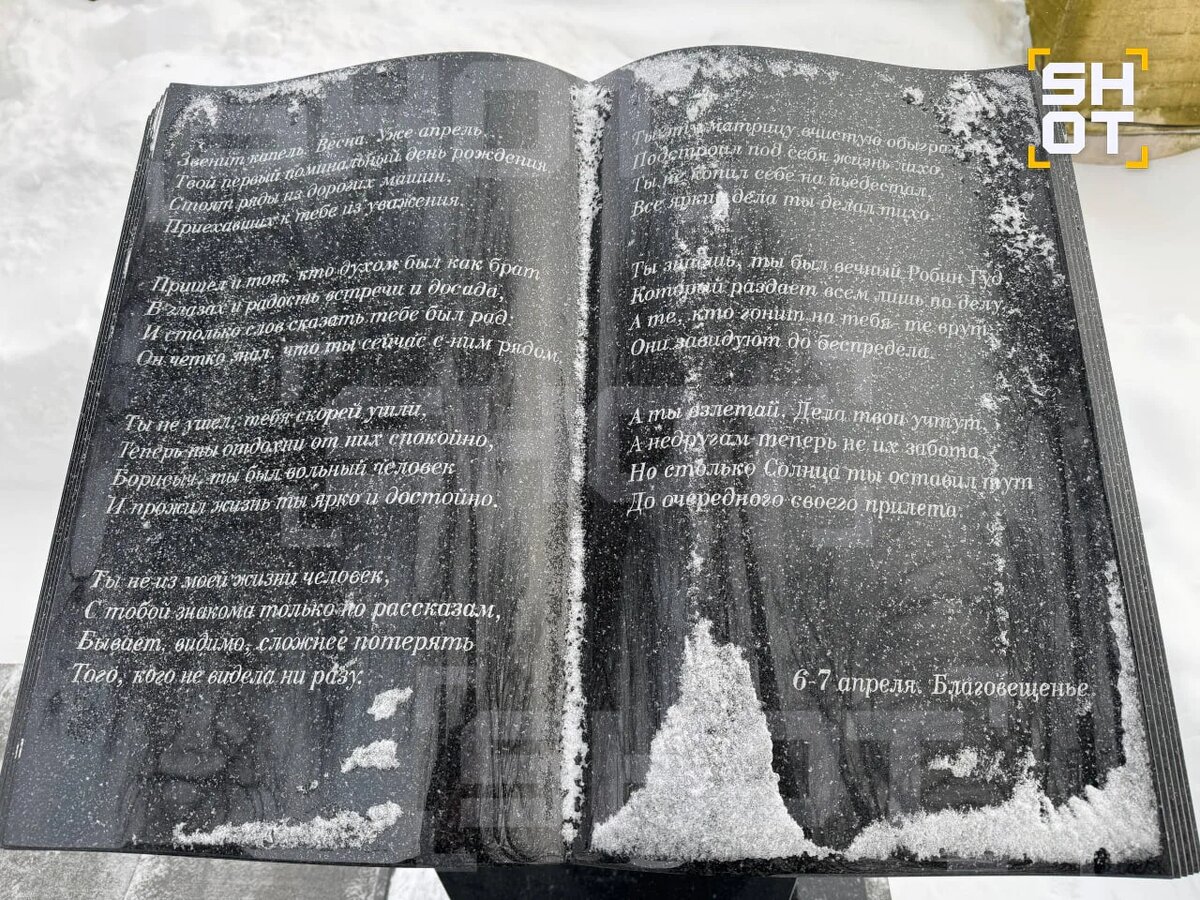 Звенит капель. Весна. Уже апрель...
Твой первый поминальный день рождения
Стоят ряды из дорогих машин,
Приехавших к тебе из уважения.
Пришел и тот, кто духом был как брат
В глазах и радость встречи и досада,
И столько слов сказать тебе был рад.
Он четко знал, что ты сейчас с ним рядом.
Ты не ушел, тебя скорей ушли,
Теперь ты отдохни от них спокойно,
Борисыч, ты был вольный человек
И прожил жизнь ты ярко и достойно.
Ты не из моей жизни человек,
С тобой знакома только по рассказам,
Бывает, видимо, сложнее потерять
Того, кого не видела ни разу.
Ты эту матрицу вчистую обыграл
Подстроил под себя жизнь лихо,
Ты не копил себе на пьедестал,
Все яркие дела ты делал тихо.
Ты знаешь, ты был вечный Робин Гуд
Который раздает всем лишь по делу,
А те, кто гонит на тебя- те врут,
Они завидуют до беспредела.
А ты взлетай. Дела твои учтут,
А недругам теперь не их забота
Но столько Солнца ты оставил тут
До очередного своего прилета.
6-7 апреля. Благовещенье.
SHOT